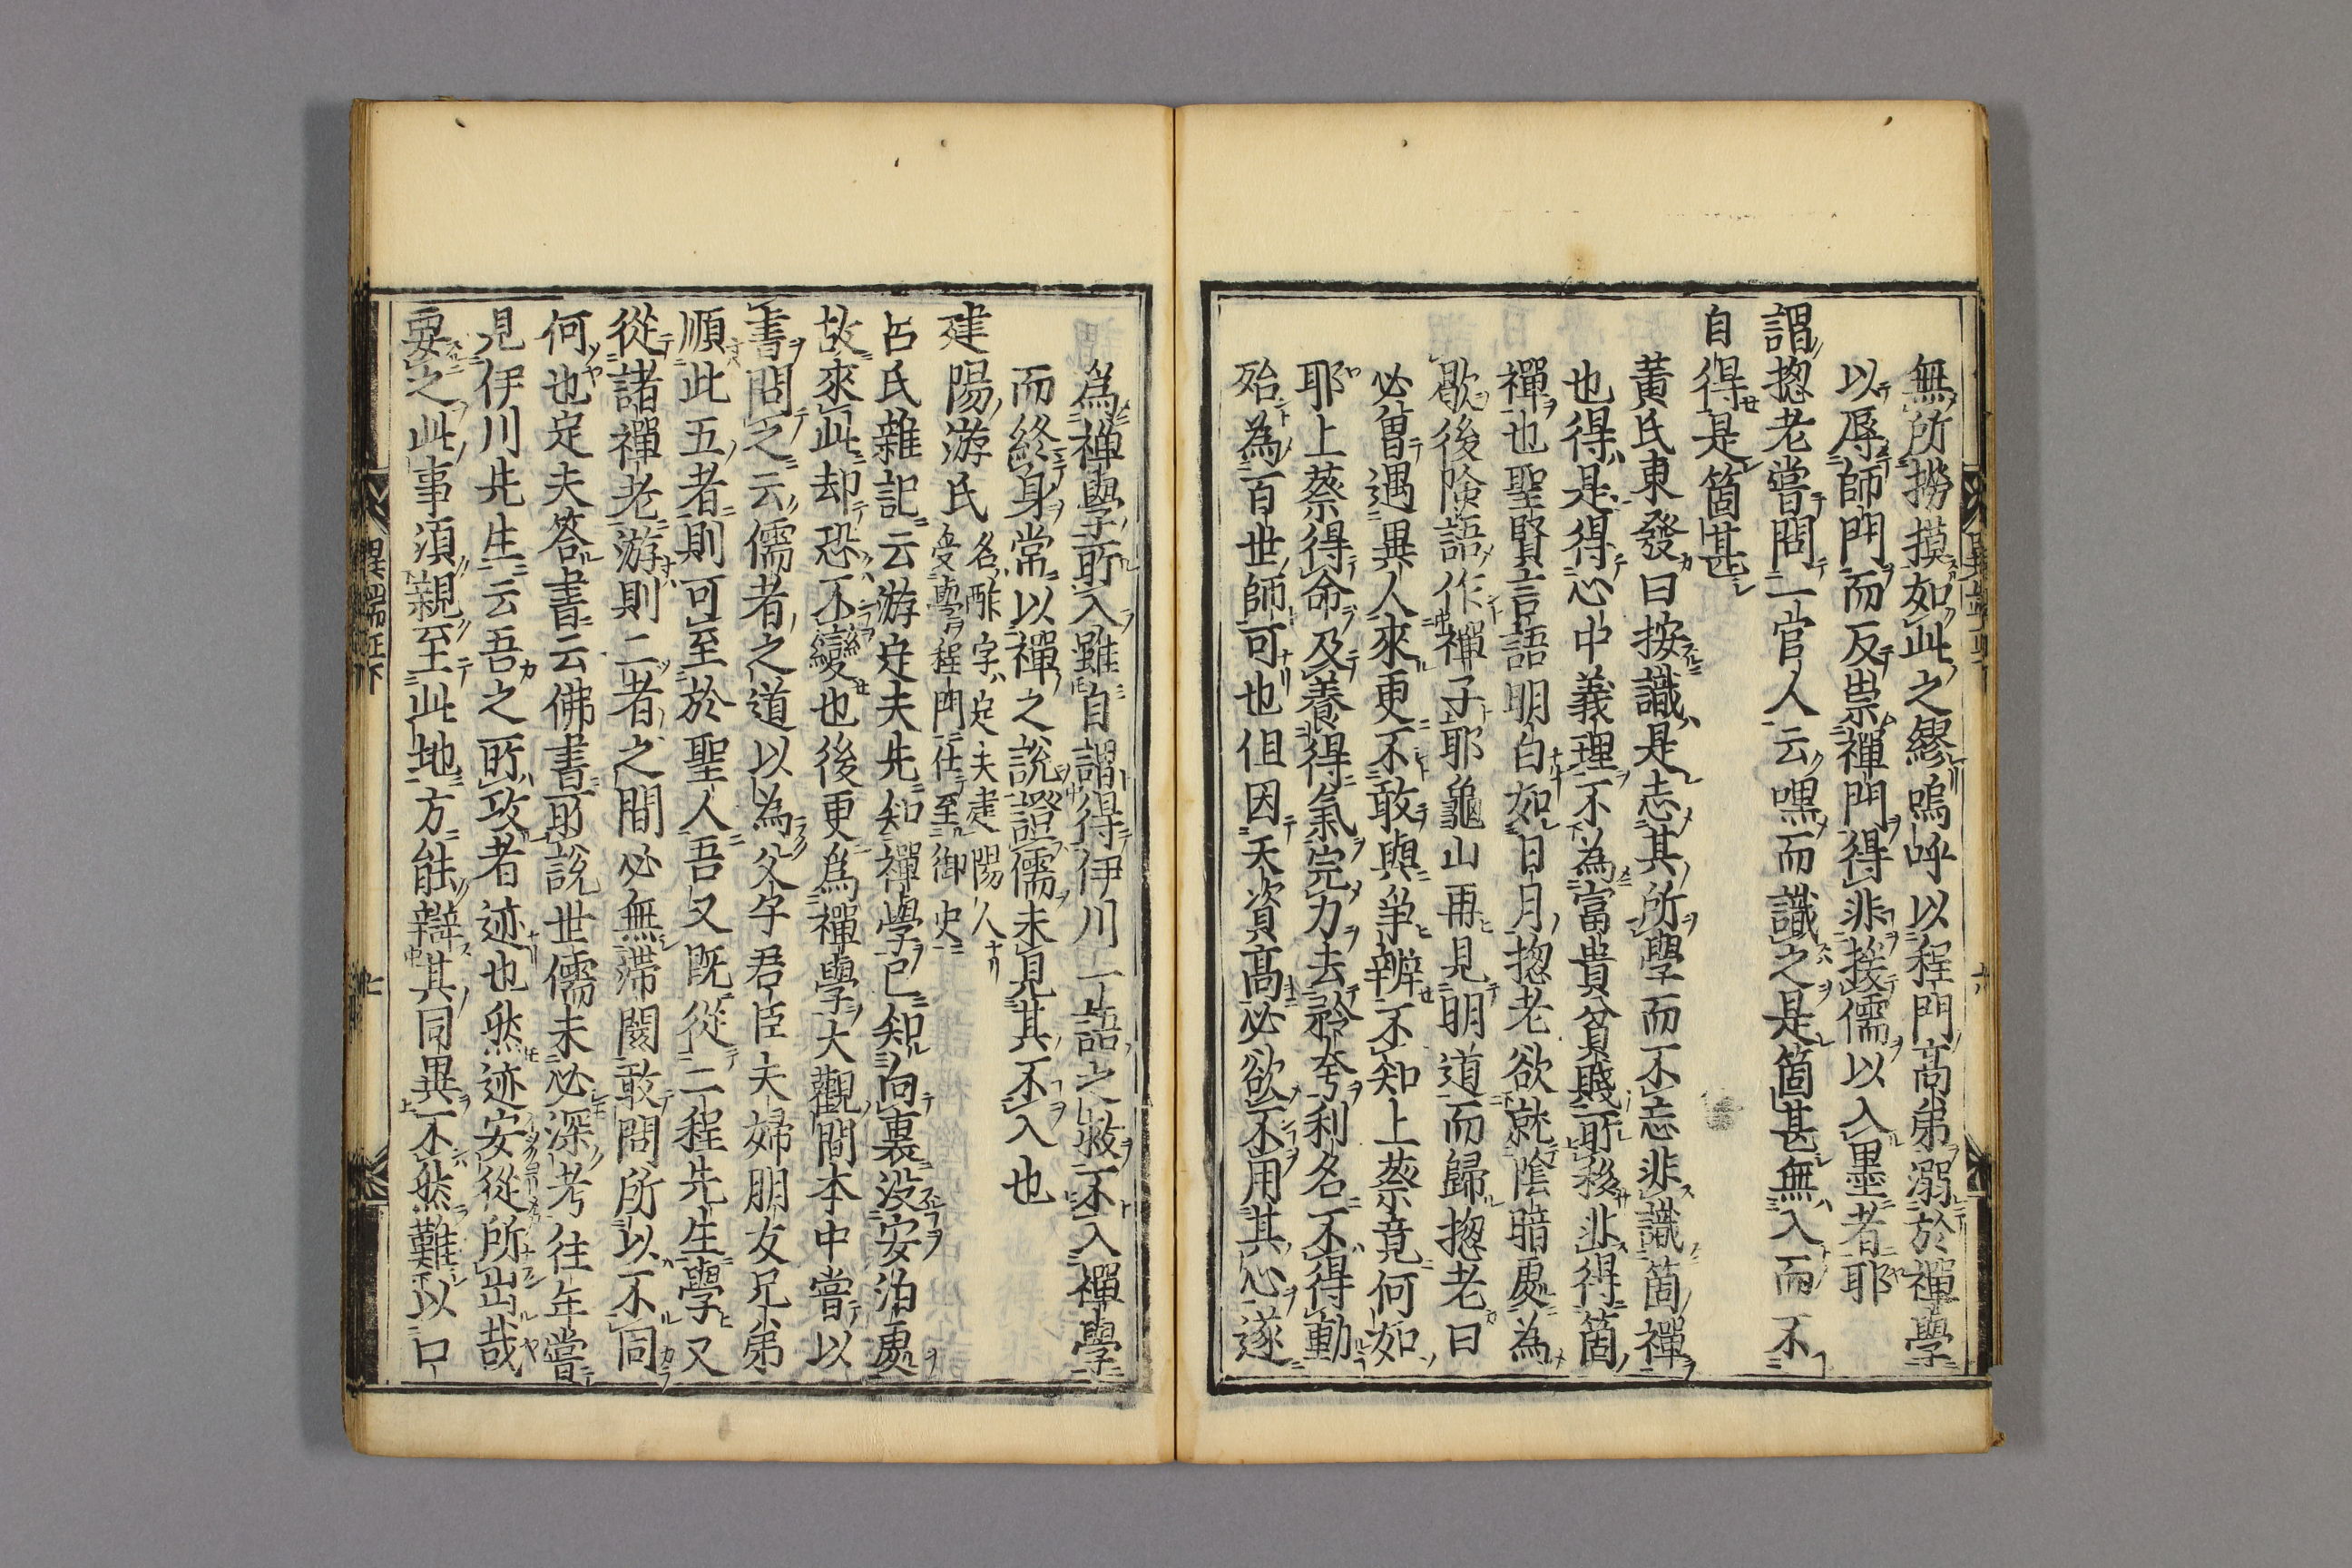 無所撈摸如此之繆嗚呼以程門高弟溺於禪學
以辱師門而反崇禪門得非援儒以入墨者耶
謂揔老嘗問一官人云嘿而識之是箇甚無入而不
自得是箇甚
黃氏東發曰按識是志其所學而不忘非識箇禪
也得是得心中義理不為富貴貧賤所移非得箇
禪也聖賢言語明白如日月揔老欲就陰暗處為
歇後險語作禪子耶龜山再見明道而歸揔老曰
必曾遇異人來更不敢與爭辨不知上蔡竟何如
耶上蔡得命及養得氣完力去矜夸利名不得動
殆為百世師可也但因天資高必欲不用其心遂
為禪學所入雖自謂得伊川一語之救不入禪學
而終身常以禪之說證儒未見其不入也
建陽游氏名酢字定夫建陽人受學程門仕至御史
呂氏雜記云游定夫先知禪學已知向裏没安泊處
故來此却恐不變也後更為禪學大觀間本中嘗以
書問之云儒者之道以為父子君臣夫婦朋友兄弟
順此五者則可至於聖人吾又既從二程先生學又
從諸禪老游則二者之間必無滯閡敢問所以不同
何也定夫答書云佛書所說世儒未必深考往年嘗
見伊川先生云吾之所攻者迹也然迹安從所出哉
要之此事須親至此地方能辯其同異不然難以口
異端辯正下